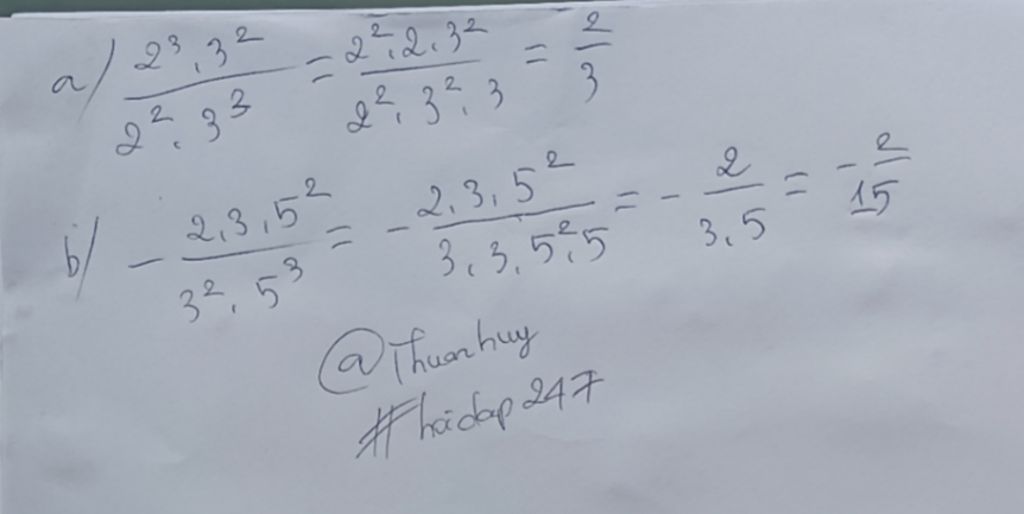 a/ 2³.3²/2².3³ = 2².2.3²/2².3².3 = 2/3
b/ - 2.3.5²/3².5³ = - 2.3.5²/3.3.5².5 = - 2/3.5 = - 2/15
@Thuanhuy
#hoidap247